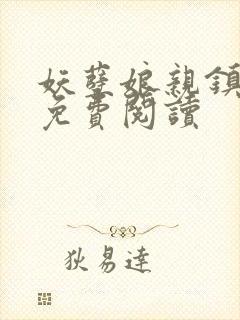 妖孽娘親鎮
免費閱讀
狄易達